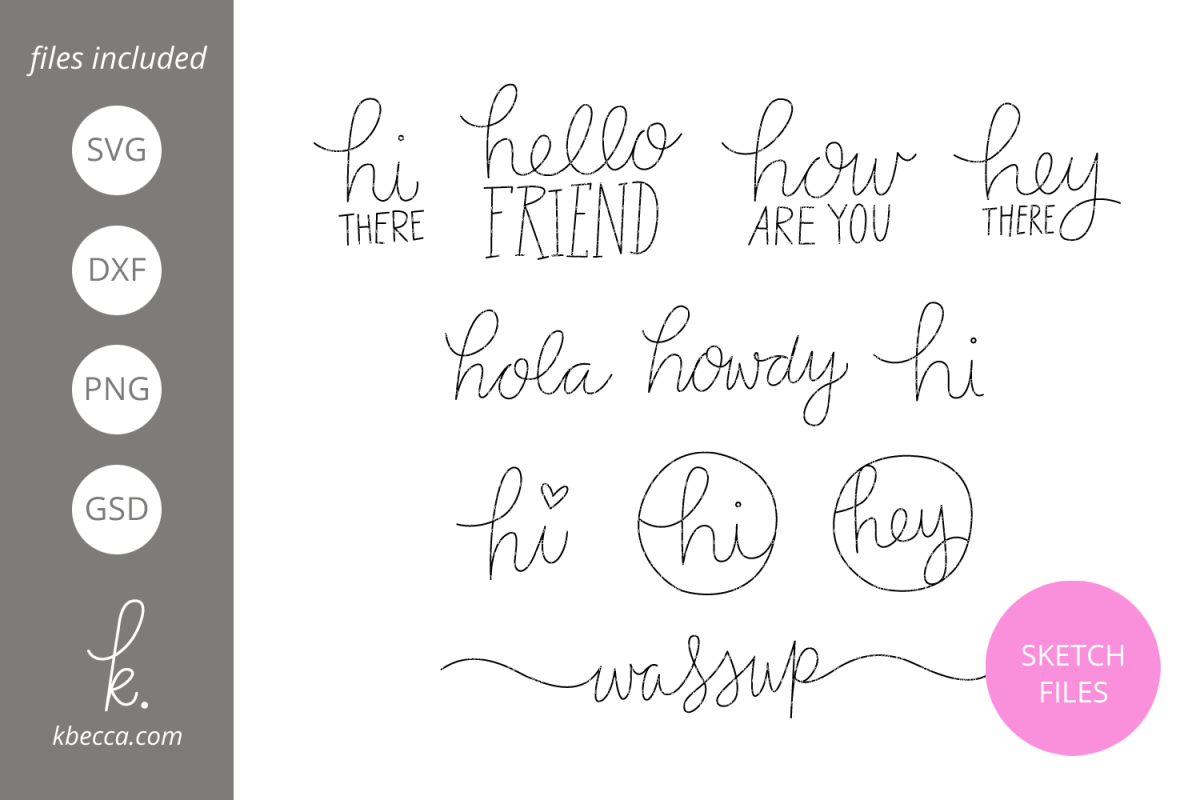 files included
SVG
DXF
PNG
GSD
k.
kbecca.com
hi
THERE
hello
FRIEND
how
ARE YOU
hey
THERE
hola
howdy
hi
hi
hi
hey
wassup
SKETCH
FILES